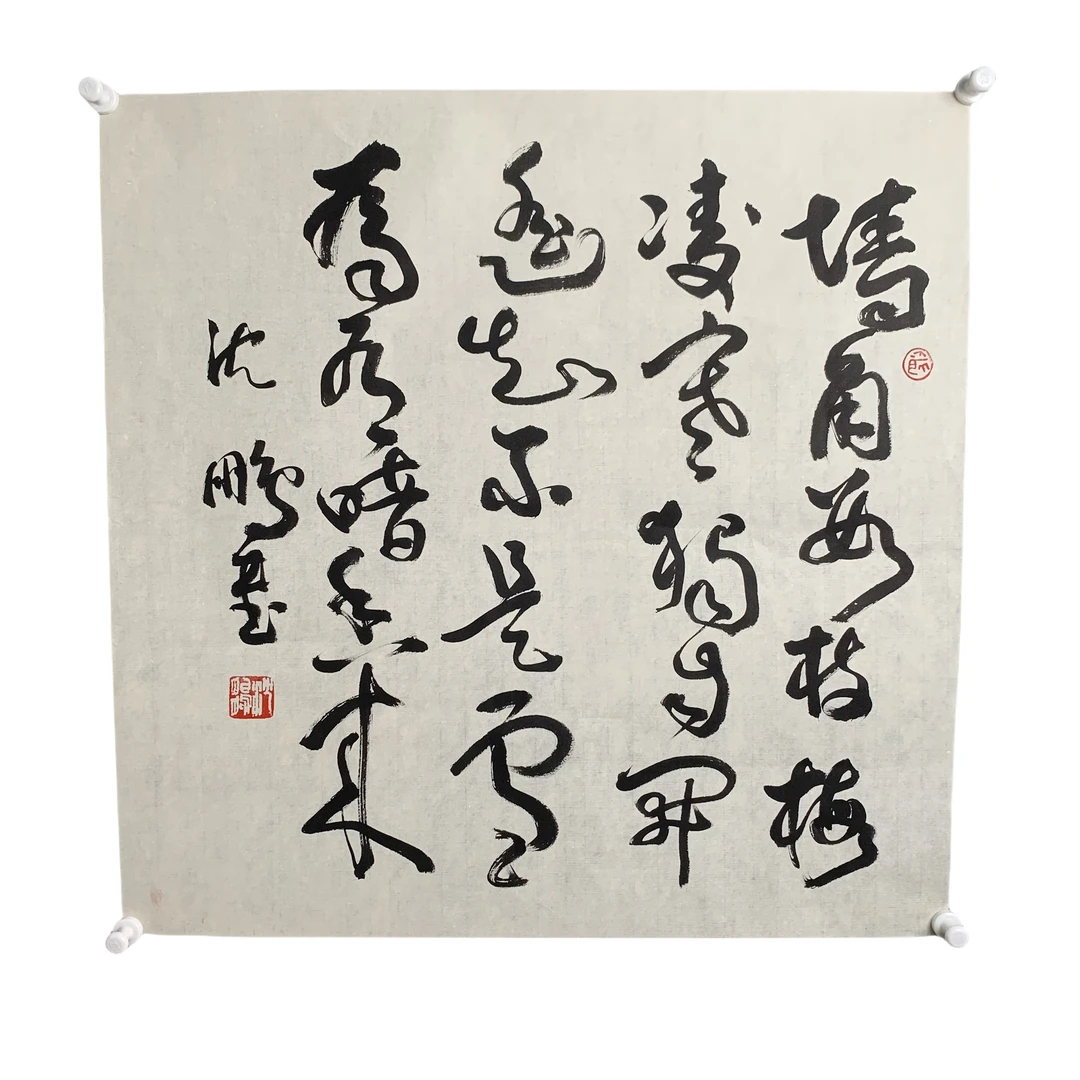 墙角数枝梅
凌寒独自开
遥知不是雪
为有暗香来
沈鹏书